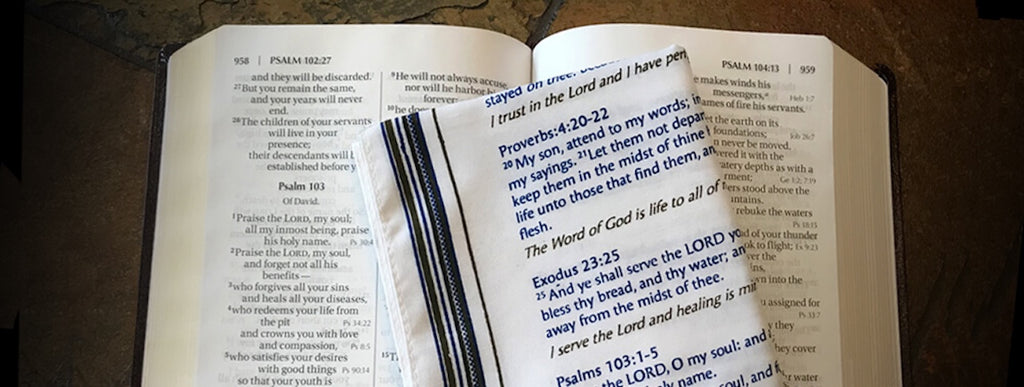 958 | PSALM 102:27
and they will be discarded.
27 But you remain the same,
and your years will never
end.
28 The children of your servants
will live in your
presence;
their descendants will
established before
Psalm 103
Of David.
1 Praise the LORD, my soul;
all my inmost being, praise
his holy name. Ps 30:4
2 Praise the LORD, my soul,
and forget not all his
benefits—
3 who forgives all your sins
and heals all your diseases,
4 who redeems your life from
the pit Ps 34:22
and crowns you with love
and compassion, Ps 8:5
5 who satisfies your desires
with good things Ps 90:14
so that your youth is
9 He will not always accuse,
nor will he harbor
forever;
10 he does
15
stayed on thee:
I trust in the Lord and I have
Proverbs:4:20-22
20 My son, attend to my words;
my sayings. 21 Let them not
keep them in the midst of thine
life unto those that find them,
flesh.
The Word of God is life to all of
Exodus 23:25
25 And ye shall serve the LORD
bless thy bread, and thy water;
away from the midst of thee.
I serve the Lord and healing is
Psalms 103:1-5
the LORD, O my soul: and
name.
soul, and
PSALM 104:13 | 959
makes winds his
messengers, Heb 1:7
of fire his servants.
the earth on its
foundations; Job 26:7
never be moved.
it with the
depths as with a
Ge 1:2; 7:19
stood above the
rebuke the waters
Ps 18:15
of your thunder
to flight; Ps 9:23
the
into the
assigned for
Ps 33:7
they
cover
water